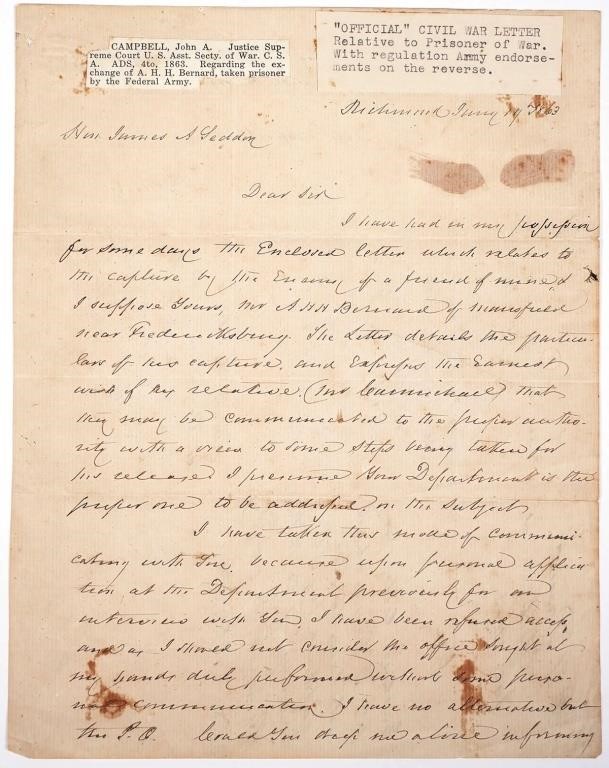 CAMPBELL, John A. Justice Sup-
reme Court U. S. Asst. Secty. of War. C. S.
A. ADS, 4to, 1863. Regarding the ex-
change of A. H. H. Bernard, taken prisoner
by the Federal Army.
"OFFICIAL" CIVIL WAR LETTER
Relative to Prisoner of War.
With regulation Army endorse-
ments on the reverse.
Richmond Jany 19 1863
Hon James A Seddon
Dear Sir
I have had in my possession
for some days the Enclosed letter which relates to
the capture by the Enemy of a friend of mine &
I suppose Yours, Mr A H H Bernard of Mansfield
near Fredericksburg. The Letter details the particu-
lars of his capture, and Expresses the Earnest
wish of his relative, (Mrs Carmichael) that
they may be communicated to the proper autho-
rity with a view to some steps being taken for
his release. I presume Your Department is the
proper one to be addressed on the subject
I have taken this mode of communi-
cating with You, because upon personal applica
tion at the Department previously for an
interview with You, I have been refused access,
and as I should not consider the office sought at
my hands duly performed without some perso-
nal communication. I have no alternative but
the P. O. Could You drop me a line informing